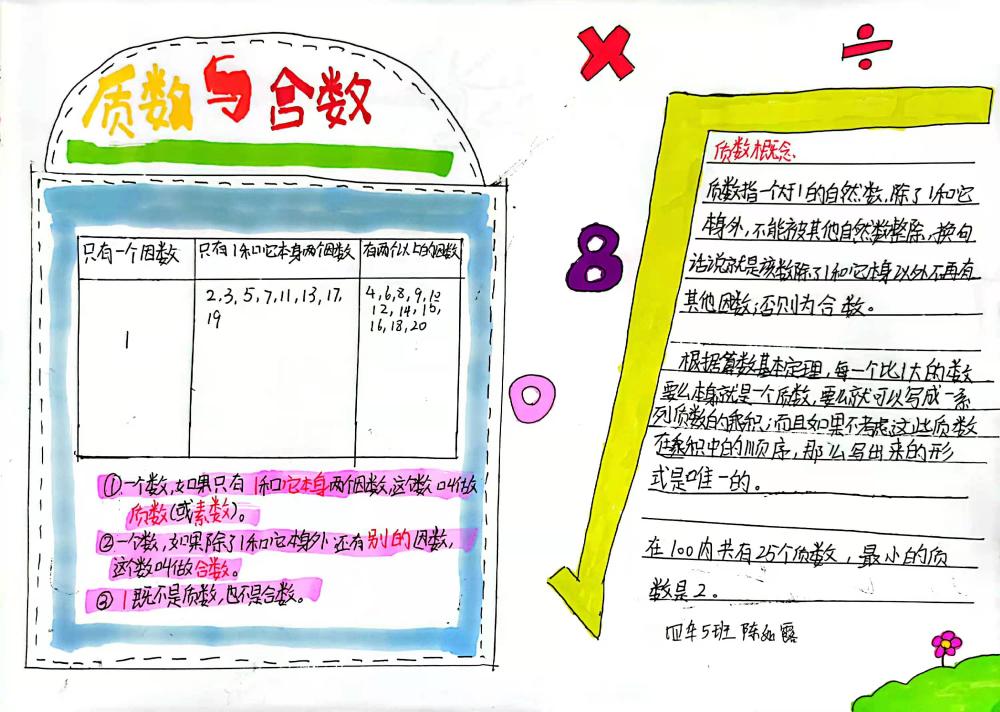 质数与合数
×
÷
只有一个因数 只有1和它本身两个因数 有两个以上的因数
1
2,3,5,7,11,13,17,
19
4,6,8,9,10
12,14,15,
16,18,20
①一个数,如果只有1和它本身两个因数,这个数叫做
质数(或素数)。
②一个数,如果除了1和它本身外还有别的因数,
这个数叫做合数。
③1既不是质数,也不是合数。
8
0
质数概念
质数指一个大于1的自然数,除了1和它
本身外,不能被其他自然数整除,换句
话说就是该数除了1和它本身以外不再有
其他因数;否则为合数。
根据算数基本定理,每一个比1大的数
要么本身就是一个质数,要么就可以写成一系
列质数的乘积;而且如果不考虑这些质数
在乘积中的顺序,那么写出来的形
式是唯一的。
在100内共有25个质数,最小的质
数是2。
四年5班 陈如露